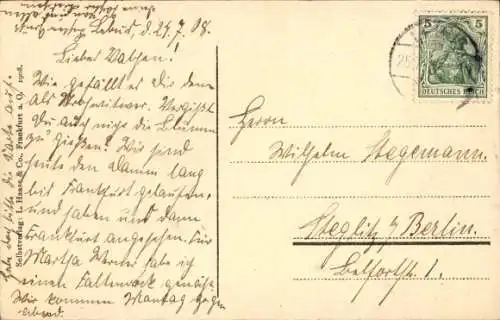 Lebus, d. 24.7.08.
Lieber Vatchen!
Wie gefällt es Dir denn
als Strohwitwer. Vergißt
Du auch nicht die Blumen
zu gießen? Wir sind
heute den Damm lang
bis Frankfurt gelaufen,
und haben uns dann
Frankfurt angesehen. Für
Martha habe ich
einen Faltenrock genäht.
Wir kommen Montag gegen
abend.
hebt bitte die Karte auf.
Selbstverlag: L. Haase & Co., Frankfurt a. O. 1908.
5 5
DEUTSCHES REICH
Herrn
Wilhelm Stegemann.
Steglitz b/Berlin.
Belfortstr. 1.